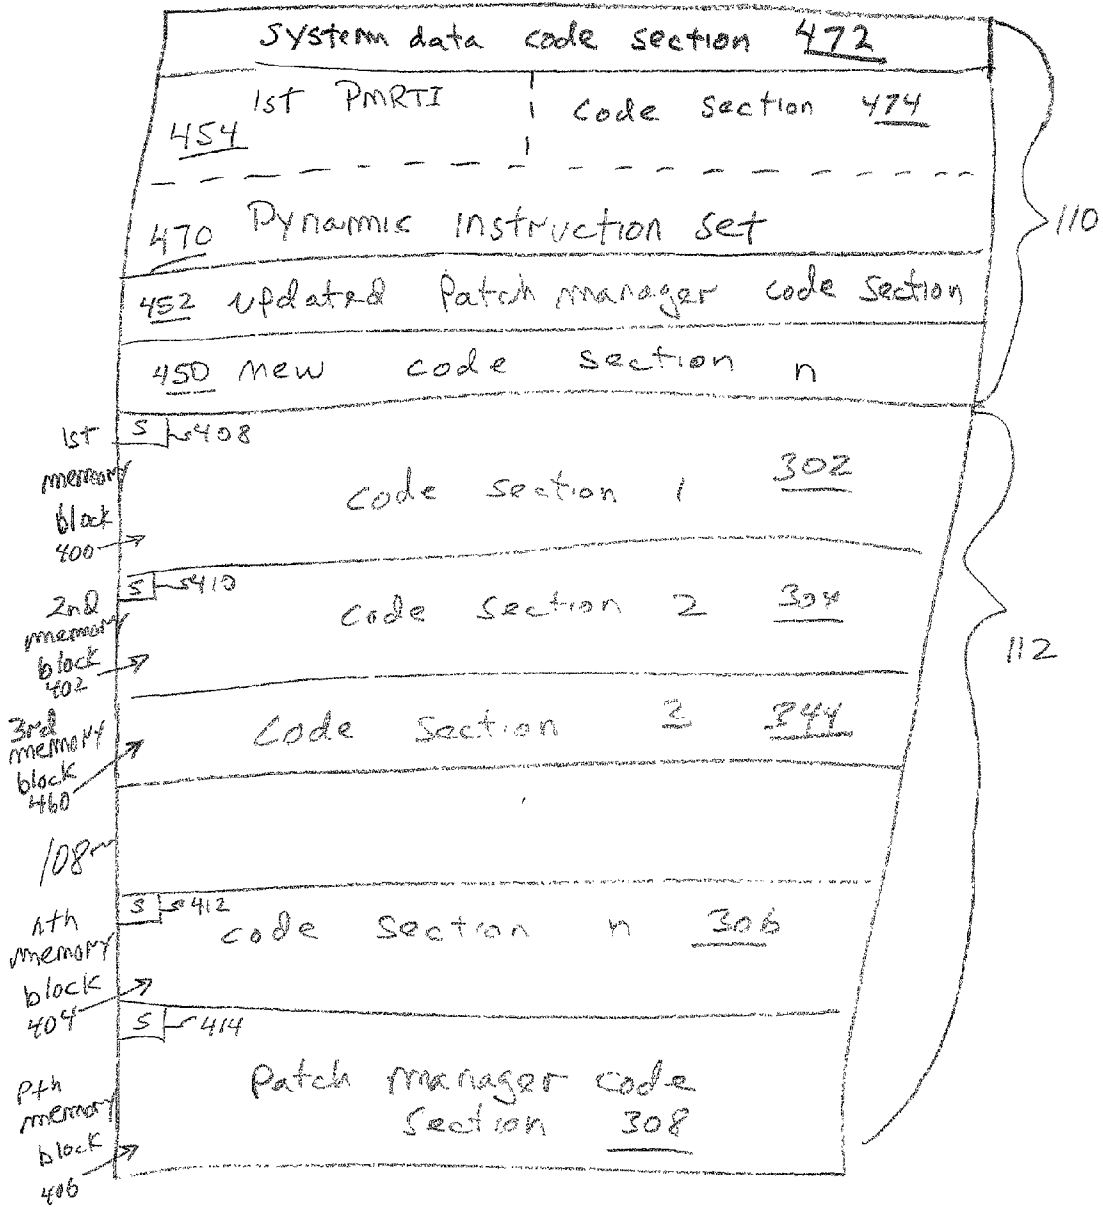 system data code section 472
1st PMRTI
code section 474
454
110
470 Dynamic instruction set
452 updated patch manager code section
450 new code section n
1st memory block 400
S 408
code section 1 302
2nd memory block 402
S 410
code section 2 304
112
3rd memory block 460
code section 3 344
108
nth memory block 404
S 412
code section n 306
S 414
pth memory block 406
patch manager code
section 308